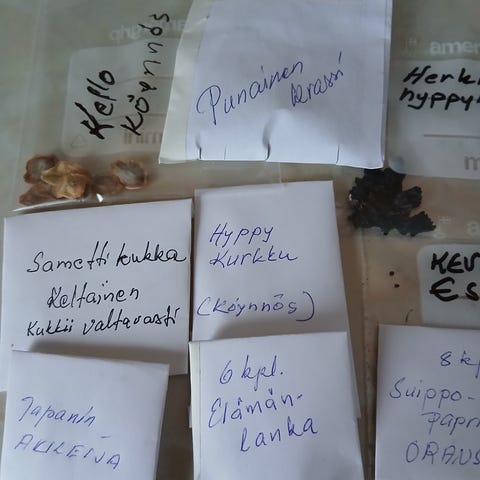 Kello
Köynnös
Punainen
krassi
Samettikukka
Keltainen
Kukkii valtavasti
Hyppy
Kurkku
(Köynnös)
Japanin
AKILEIJA
6 kpl.
Elämän-
lanka
8 kp
Suippo-
papri
ORANS